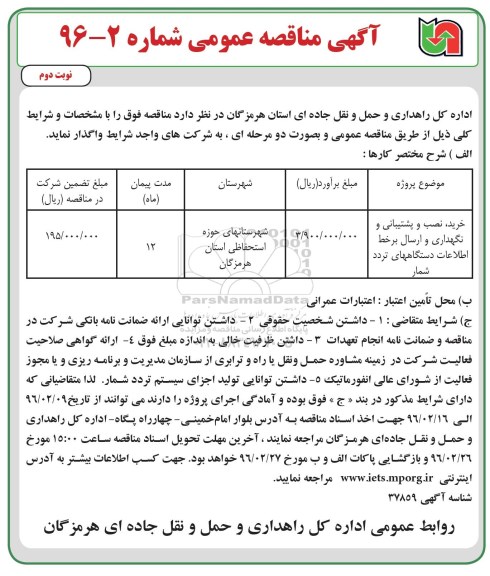 آگهی مناقصه عمومی شماره ۲-۹۶
نوبت دوم
اداره کل راهداری و حمل و نقل جاده ای استان هرمزگان در نظر دارد مناقصه فوق را با مشخصات و شرایط
کلی ذیل از طریق مناقصه عمومی و بصورت دو مرحله ای ، به شرکت های واجد شرایط واگذار نماید.
الف ) شرح مختصر کارها :
موضوع پروژه	مبلغ برآورد(ریال)	شهرستان	مدت پیمان (ماه)	مبلغ تضمین شرکت در مناقصه (ریال)
خرید، نصب و پشتیبانی و نگهداری و ارسال برخط اطلاعات دستگاههای تردد شمار	۳/۹۰۰/۰۰۰/۰۰۰	شهرستانهای حوزه استحفاظی استان هرمزگان	۱۲	۱۹۵/۰۰۰/۰۰۰
ParsNamadData
ب) محل تأمین اعتبار : اعتبارات عمرانی
ج) شرایط متقاضی : ۱- داشتن شخصیت حقوقی ۲- داشتن توانایی ارائه ضمانت نامه بانکی شرکت در
مناقصه و ضمانت نامه انجام تعهدات ۳- داشتن ظرفیت خالی به اندازه مبلغ فوق ۴- ارائه گواهی صلاحیت
فعالیت شرکت در زمینه مشاوره حمل ونقل یا راه و ترابری از سازمان مدیریت و برنامه ریزی و یا مجوز
فعالیت از شورای عالی انفورماتیک ۵- داشتن توانایی تولید اجزای سیستم تردد شمار. لذا متقاضیانی که
دارای شرایط مذکور در بند « ج » فوق بوده و آمادگی اجرای پروژه را دارند می توانند از تاریخ ۹۶/۰۲/۰۹
الی ۹۶/۰۲/۱۶ جهت اخذ اسناد مناقصه به آدرس بلوار امام‌خمینی- چهارراه پگاه- اداره کل راهداری و
حمل و نقل جاده‌ای هرمزگان مراجعه نمایند ، آخرین مهلت تحویل اسناد مناقصه ساعت ۱۵:۰۰ مورخ
۹۶/۰۲/۲۶ و بازگشایی پاکات الف و ب مورخ ۹۶/۰۲/۲۷ خواهد بود. جهت کسب اطلاعات بیشتر به آدرس
اینترنتی www.iets.mporg.ir مراجعه نمایید.
شناسه آگهی ۳۷۸۵۹
روابط عمومی اداره کل راهداری و حمل و نقل جاده ای هرمزگان